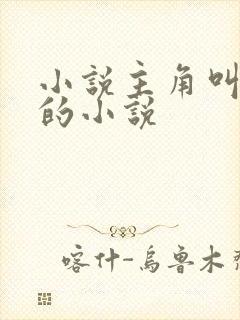 小說主角叫
的小說
喀什-烏魯木齊